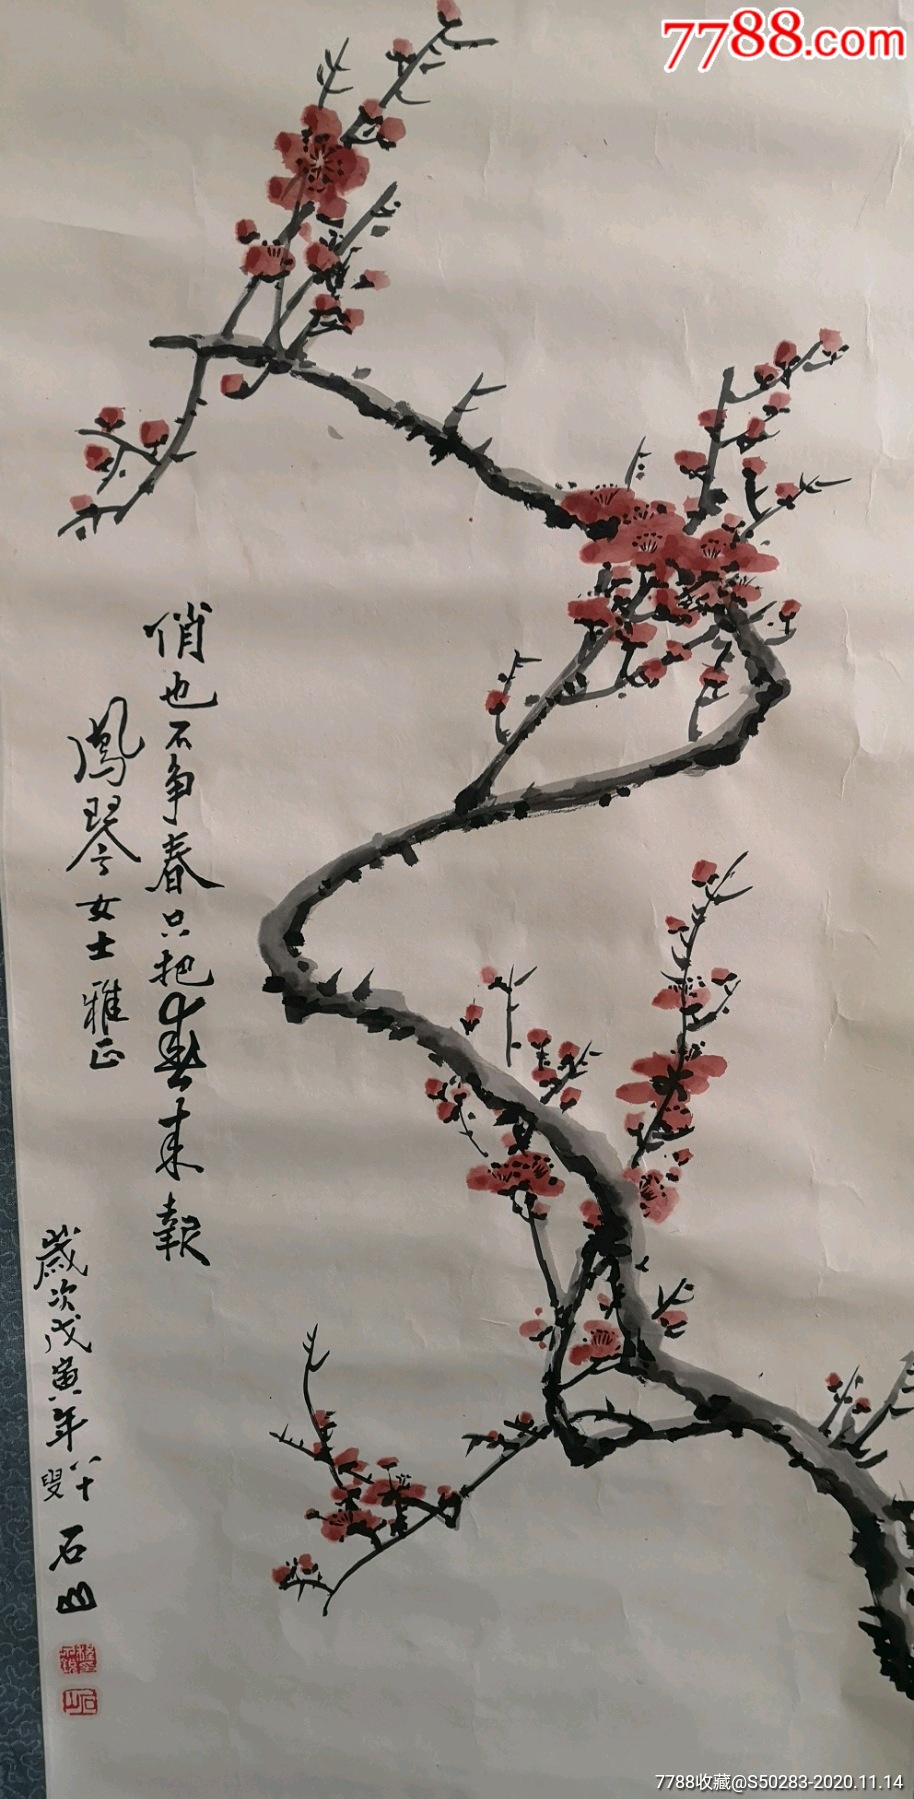 7788.com
俏也不争春只把春来報
鳳琴女士雅正
歲次戊寅年八十叟石山
石山
7788收藏@S50283-2020.11.14